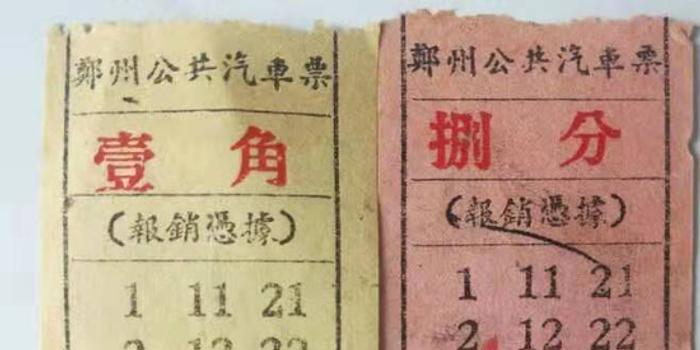 鄭州公共汽車票
壹角
(報銷憑據)
1 11 21
2 12 22
鄭州公共汽車票
捌分
(報銷憑據)
1 11 21
2 12 22